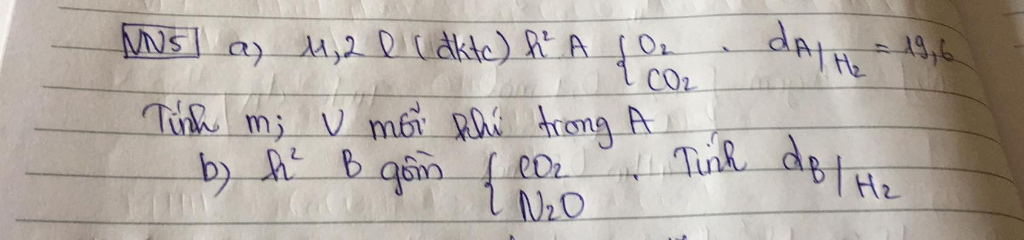 VN5 a) 11,2 l (đktc) h² A { O2 CO2 . dA/H2 = 19,6
Tính m; V mỗi khí trong A
b) h² B gồm { CO2 N2O . Tính dB/H2